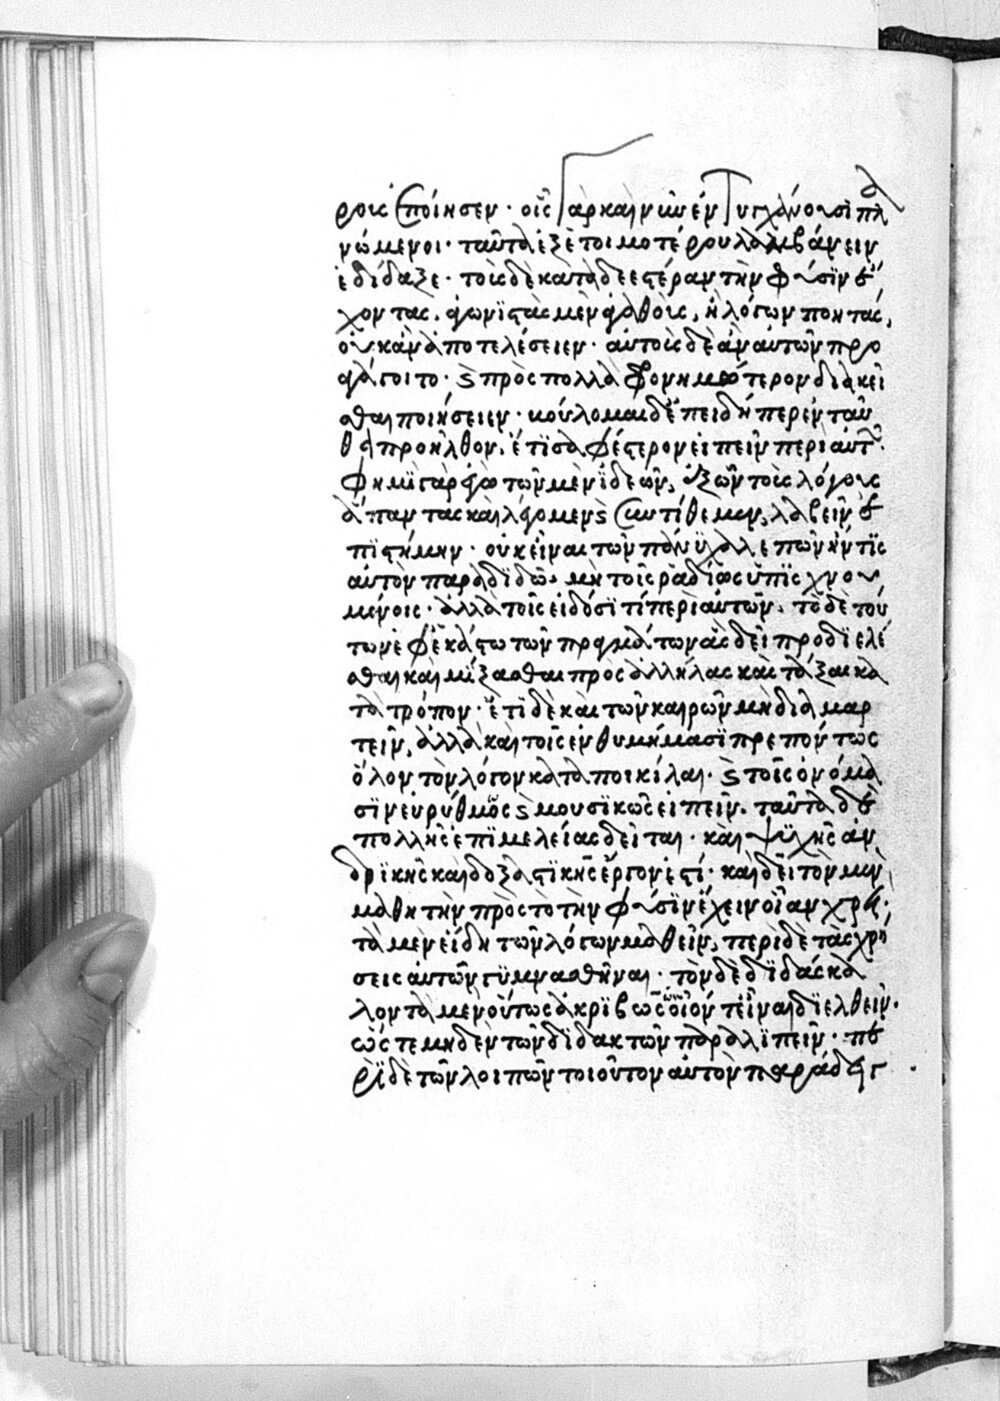 ρους ἐποίησεν· οἷς γὰρ καὶ νῦν ἐντυγχάνουσι πλα
νώμενοι· ταῦτα ἐξ ἑτοιμοτέρου λαμβάνειν
ἐδίδαξε· τοὺς δὲ καταδεεστέραν τὴν φύσϊν ἔ
χοντας. ἀγωνϊστὰς μὲν ἀγαθοὺς, ἢ λόγων ποιητὰς,
οὐκ ἂν ἀποτελέσειεν· αὐτοὺς δὲ ἂν αὑτῶν προ
αγάγοι το· καὶ πρὸς πολλὰ φρονημωτερον διακεῖ
σθαι ποιήσειεν· βούλομαι δ' ἐπειδήπερ ἐνταῦ
θα προῆλθον. ἔτϊ σαφέστερον εἰπεῖν περὶ αὐτῶν·
φημϊ γὰρ ἐγὼ τῶν μὲν ϊδεῶν, ἐξ ὧν τοὺς λόγους
ἅπαντας καὶ λέγομεν καὶ συντίθεμεν, λαβεῖν ἐ
πϊστήμην· οὐκ εἶναι τῶν πάνυ χαλεπῶν ἤν τϊς
αὑτὸν παραδϊδῶ. μὴ τοῖς ῥαδίως ὑπϊσχνου
μένοις· ἀλλὰ τοῖς εἰδόσϊ τί περὶ αὐτῶν. τὸ δὲ τού
των ἐφ' ἑκάστω τῶν πραγμάτων ἃς δεῖ προδϊελέ
σθαι καὶ μϊξασθαι πρὸς ἀλλήλας καὶ τάξαι κα
τὰ τρόπον· ἔτϊ δὲ καὶ τῶν καιρῶν μὴ διαμαρ
τεῖν, ἀλλὰ καὶ τοῖς ἐνθυμήμασϊ πρεπόντως
ὅλον τὸν λόγον καταποικίλαι· καὶ τοῖς ὀνόμα
σϊν εὐρύθμως καὶ μουσϊκῶς εἰπεῖν. ταῦτα δὲ
πολλῆς ἐπϊμελείας δεῖται· καὶ ψϋχῆς ἀν
δρϊκῆς καὶ δοξαστϊκῆς ἔργον ἐστί· καὶ δεῖ τὸν μὲν
μαθητὴν πρὸς τὸ τὴν φύσϊν ἔχειν οἵαν χρή·
τὰ μὲν εἴδη τῶν λόγων μαθεῖν. περὶ δὲ τὰς χρή
σεις αὐτῶν γϋμνασθῆναι· τὸν δὲ δϊδάσκα
λον τὰ μὲν οὕτως ἀκρϊβῶς οἷόν τ' εἶναι δϊελθεῖν.
ὥς τε μηδὲν τῶν δϊδακτῶν παραλϊπεῖν· πε
ρϊ δὲ τῶν λοιπῶν τοιοῦτον αὑτὸν παράδειγ